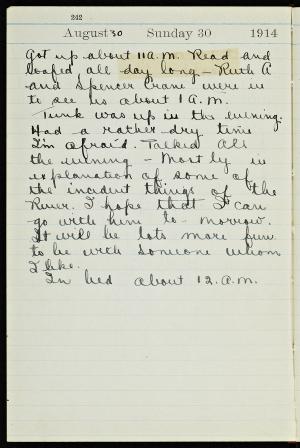 242
August 30 Sunday 30 1914
Got up about 11 A.M. Read and
loafed all day long - Ruth A
and Spencer Crane were in
to see us about 1 A.M.
Tunk was up in the evening.
Had a rather dry time
I'm afraid. Talked all
the evening - Mostly in
explanation of some of
the incident things of the
River. I hope that I can
go with him to-morrow.
It will be lots more fun
to be with someone whom
I like.
In bed about 12 A.M.